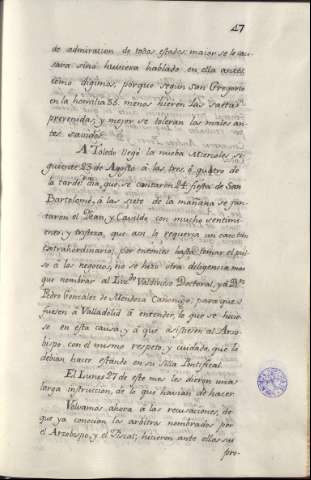 47
de admiracion de todos estados: maior se le cau-
sara sino huviera hablado en ella antes
como digimos, porque según san Gregorio
en la homilia 35. menos hieren las saetas
prevenidas, y mejor se toleran los males an-
tes savidos.
A Toledo llegó la nueba Miercoles si-
guiente 23 de Agosto à las tres ò quatro de
la tarde: dia, que se contaron 24 fiesta de San
Bartolomé, à las siete de la mañana se jun-
taron el Dean, y Cavildo con mucho sentimi-
ento, y tristeza, que asi lo requeria un caso tan
extrahordinario; por entonces hasta tomar el pul-
so á los negocios, no se hizo otra diligencia mas
que nombrar al Liz.do Valdivieso Doctoral, y á D.n
Pedro Gonzalez de Mendoza Canonigo, para que
fuesen à Valladolid à entender lo que se hicie-
se en esta causa, y á que asistiesen al Arzo-
bispo con el mismo respeto, y cuidado, que lo
debian hacer estando en su Silla Pontifical.
El Lunes 27 de este mes les dieron una
larga instruccion, de lo que havian de hacer.
Volvamos ahora à las recusaciones, de
que ya conocian los arbitros nombrados por
el Arzobispo, y el Fiscal; hicieron ante ellos sus
pro-